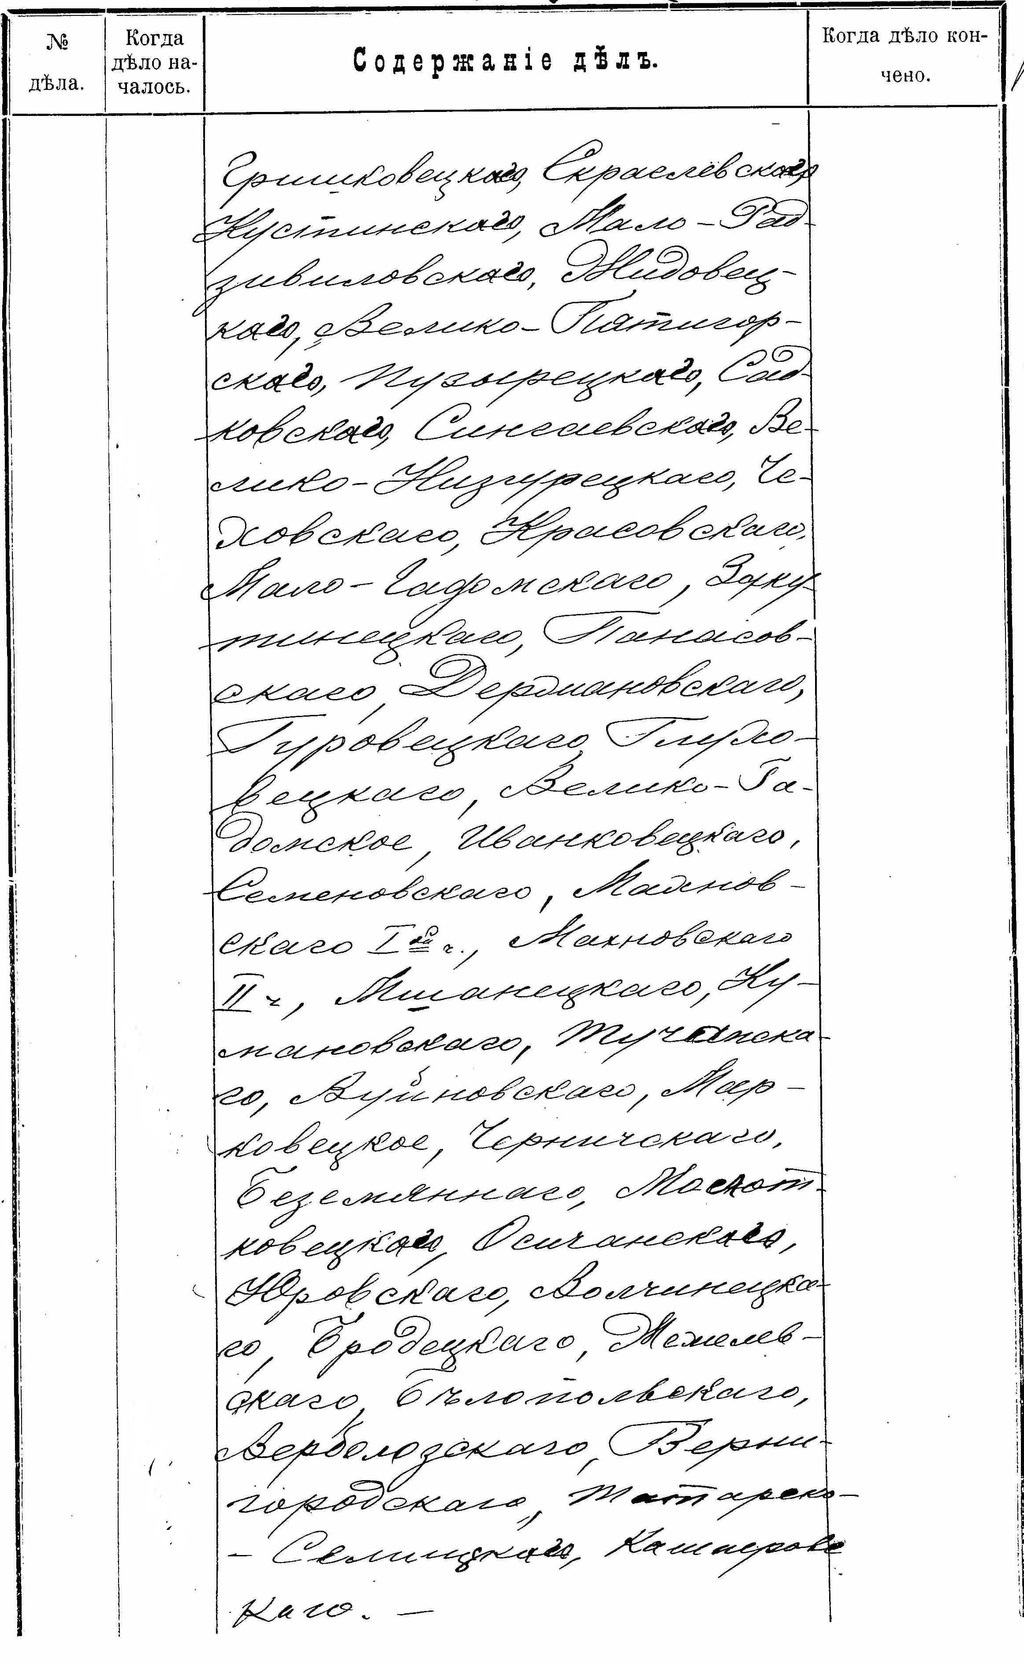 № дѣла.
Когда дѣло на-
чалось.
Содержаніе дѣлъ.
Когда дѣло кон-
чено.
Гришковецкаго, Скраглевскаго
Кустинскаго, Мало-Рад-
зивиловскаго, Жидовец-
каго, Велико-Пятигор-
скаго, Пузырецкаго, Сад-
ковскаго, Сингаевскаго, Ве-
лико-Низгурецкаго, Че-
ховскаго, Красовскаго,
Мало-Гадомскаго, Заку-
тинецкаго, Панасов-
скаго, Дермановскаго,
Гуровецкаго, Глухо-
вецкаго, Велико-Га-
домское, Иванковецкаго,
Семеновскаго, Махнов-
скаго I ч., Махновскаго
II ч, Мшанецкаго, Ку-
мановскаго, Тучапска-
го, Вуйновскаго, Мар-
ковецкое, Черничскаго,
Беземяннаго, Молот-
ковецкаго, Осичанскаго,
Юровскаго, Волчинецка-
го, Бродецкаго, Жежелев-
скаго, Бѣлопольскаго,
Верболозскаго, Верни-
городскаго, Татарско-
-Селицкаго, Кашперовс
каго. —